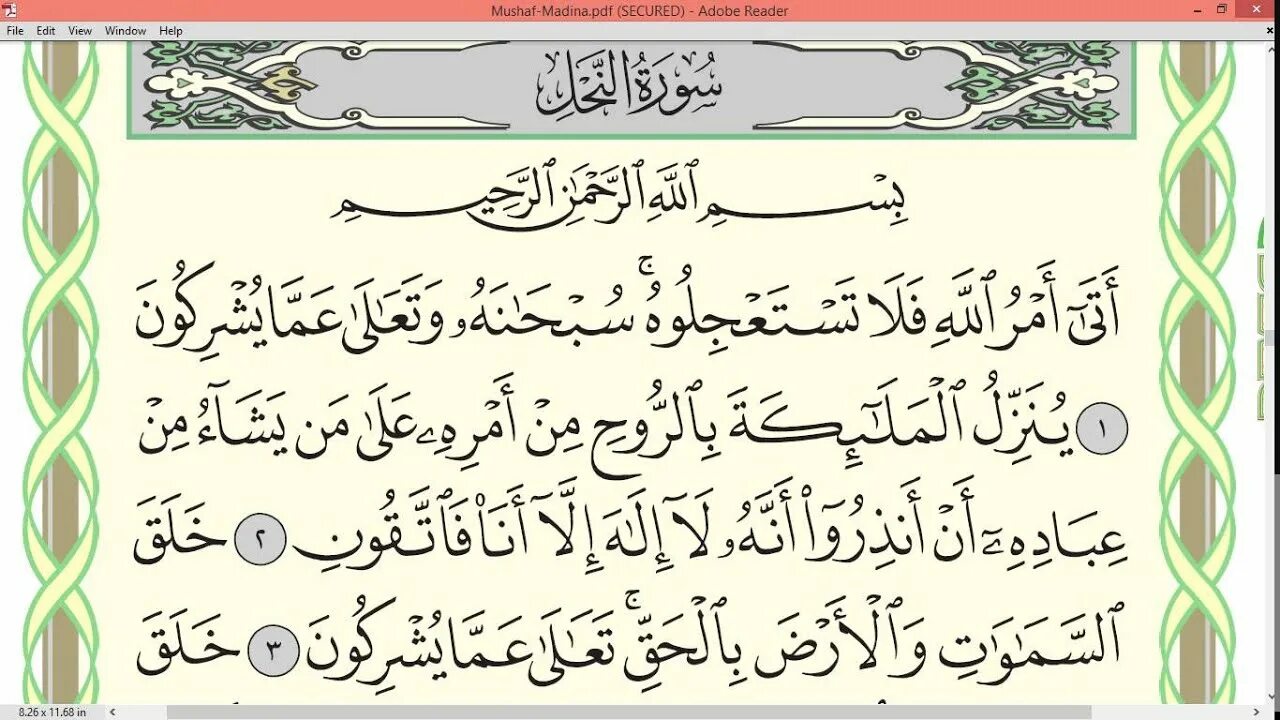 Mushaf-Madina.pdf (SECURED) - Adobe Reader
File Edit View Window Help
سُورَةُ النَّحْلِ
بِسْمِ ٱللَّهِ ٱلرَّحْمَٰنِ ٱلرَّحِيمِ
أَتَىٰٓ أَمْرُ ٱللَّهِ فَلَا تَسْتَعْجِلُوهُۚ سُبْحَٰنَهُۥ وَتَعَٰلَىٰ عَمَّا يُشْرِكُونَ
١ يُنَزِّلُ ٱلْمَلَٰٓئِكَةَ بِٱلرُّوحِ مِنْ أَمْرِهِۦ عَلَىٰ مَن يَشَآءُ مِنْ
عِبَادِهِۦٓ أَنْ أَنذِرُوٓا۟ أَنَّهُۥ لَآ إِلَٰهَ إِلَّآ أَنَا۠ فَٱتَّقُونِ ٢ خَلَقَ
ٱلسَّمَٰوَٰتِ وَٱلْأَرْضَ بِٱلْحَقِّۚ تَعَٰلَىٰ عَمَّا يُشْرِكُونَ ٣ خَلَقَ
8.26 x 11.68 in